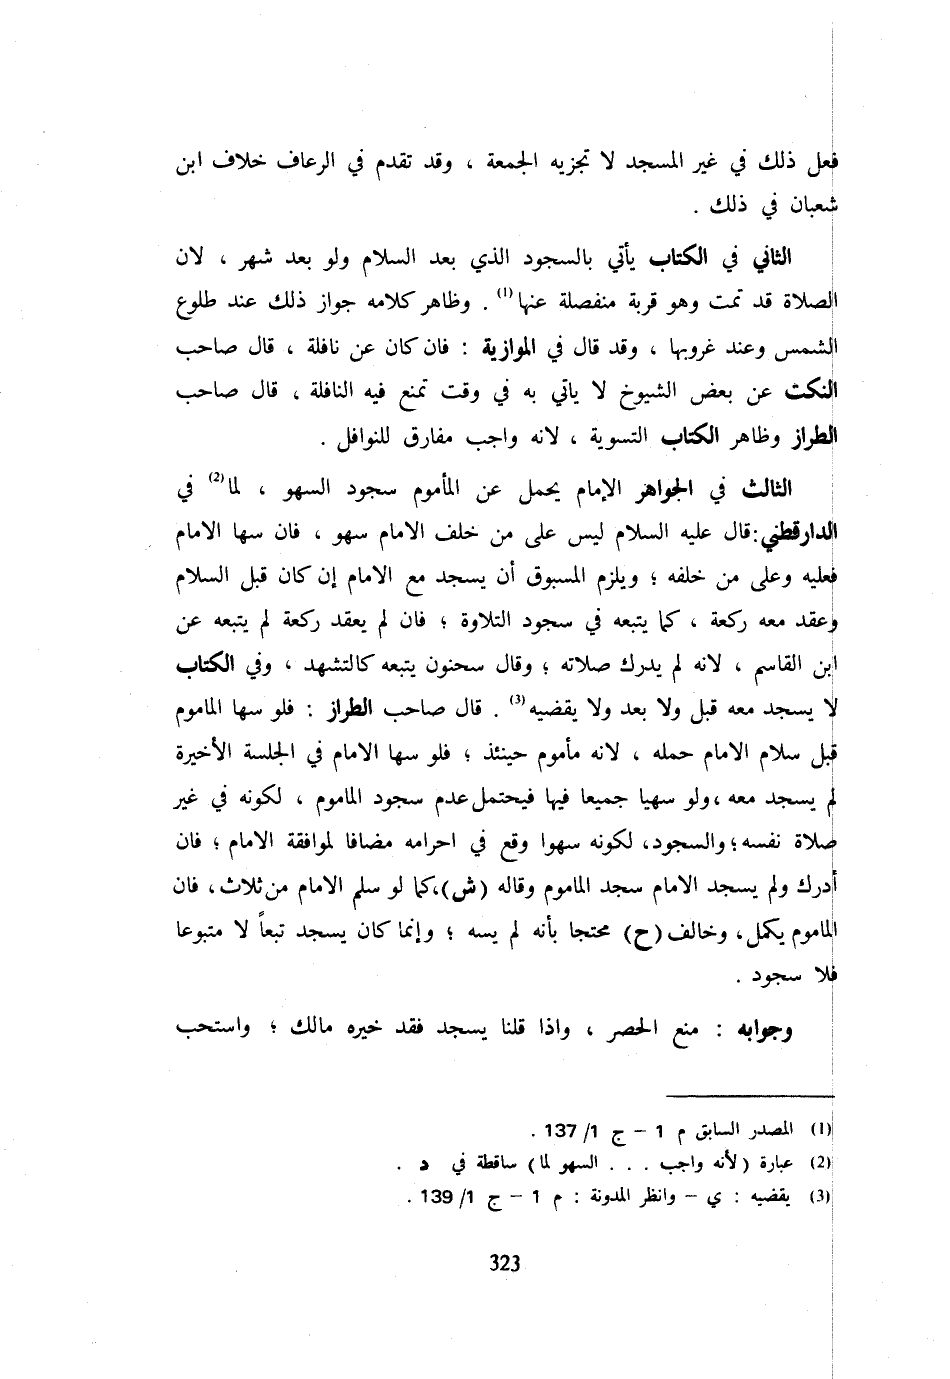 فعل ذلك في غير المسجد لا تجزيه الجمعة ، وقد تقدم في الرعاف خلاف ابن
شعبان في ذلك .
الثاني في الكتاب يأتي بالسجود الذي بعد السلام ولو بعد شهر ، لان
الصلاة قد تمت وهو قربة منفصلة عنها (1) . وظاهر كلامه جواز ذلك عند طلوع
الشمس وعند غروبها ، وقد قال في الموازية : فان كان عن نافلة ، قال صاحب
النكت عن بعض الشيوخ لا ياتي به في وقت تمنع فيه النافلة ، قال صاحب
الطراز وظاهر الكتاب التسوية ، لانه واجب مفارق للنوافل .
الثالث في الجواهر الإمام يحمل عن المأموم سجود السهو ، لما (2) في
الدارقطني : قال عليه السلام ليس على من خلف الامام سهو ، فان سها الامام
فعليه وعلى من خلفه ؛ ويلزم المسبوق أن يسجد مع الامام إن كان قبل السلام
وعقد معه ركعة ، كما يتبعه في سجود التلاوة ؛ فان لم يعقد ركعة لم يتبعه عن
ابن القاسم ، لانه لم يدرك صلاته ؛ وقال سحنون يتبعه كالتشهد ، وفي الكتاب
لا يسجد معه قبل ولا بعد ولا يقضيه (3) . قال صاحب الطراز : فلو سها الماموم
قبل سلام الامام حمله ، لانه مأموم حينئذ ؛ فلو سها الامام في الجلسة الأخيرة
لم يسجد معه ، ولو سهيا جميعا فيها فيحتمل عدم سجود الماموم ، لكونه في غير
صلاة نفسه ؛ والسجود، لكونه سهوا وقع في احرامه مضافا لموافقة الامام ؛ فان
أدرك ولم يسجد الامام سجد الماموم وقاله (ش)، كما لو سلم الامام من ثلاث ، فان
الماموم يكمل، وخالف (ح) محتجا بأنه لم يسه ؛ وإنما كان يسجد تبعاً لا متبوعا
فلا سجود .
وجوابه : منع الحصر ، واذا قلنا يسجد فقد خيره مالك ؛ واستحب
(1) المصدر السابق م 1 – ج 1/ 137 .
(2) عبارة (لأنه واجب . . . السهو لما) ساقطة في د .
(3) يقضيه : ي – وانظر المدونة : م 1 – ج 1/ 139 .
323